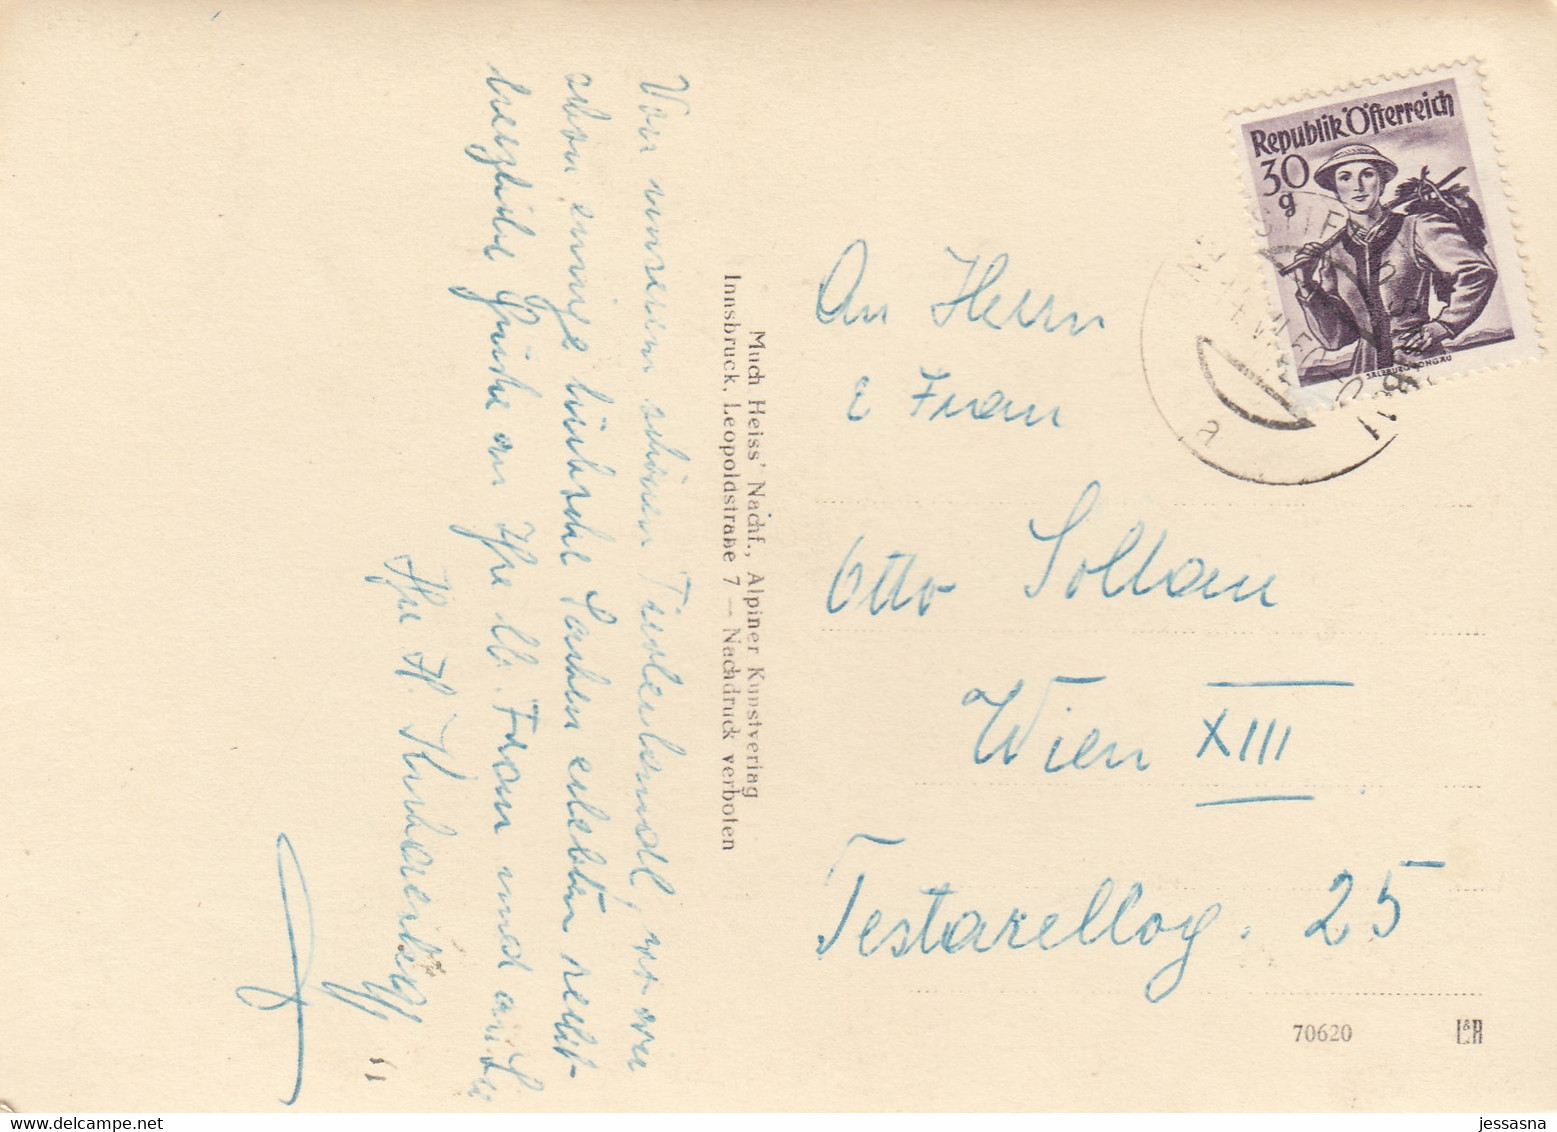 Von unserem schönen Tirolerlandl, wo wir
schon einige hübsche Sachen erlebten recht
herzliche Grüße an Ihre lb. Frau und an Sie
Ihr H.
Much Heiss' Nachf., Alpiner Kunstverlag
Innsbruck, Leopoldstraße 7 — Nachdruck verboten
Republik Österreich
30
g
SALZBURG, PONGAU
a
An Herrn
& Frau
Otto Soltau
Wien XIII
Testarellog. 25
70620
L&R
jessasna